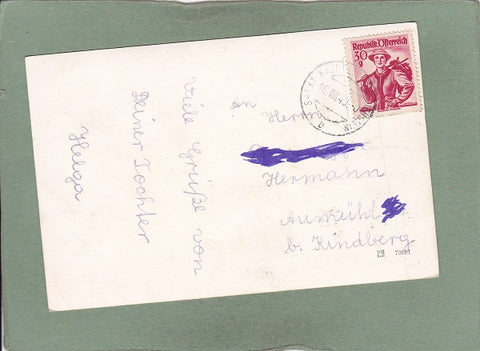 Viele Grüße von
Deiner Tochter
Helga
An Herrn
Hermann
Aumühl
b. Kindberg
Republik Österreich
30
g